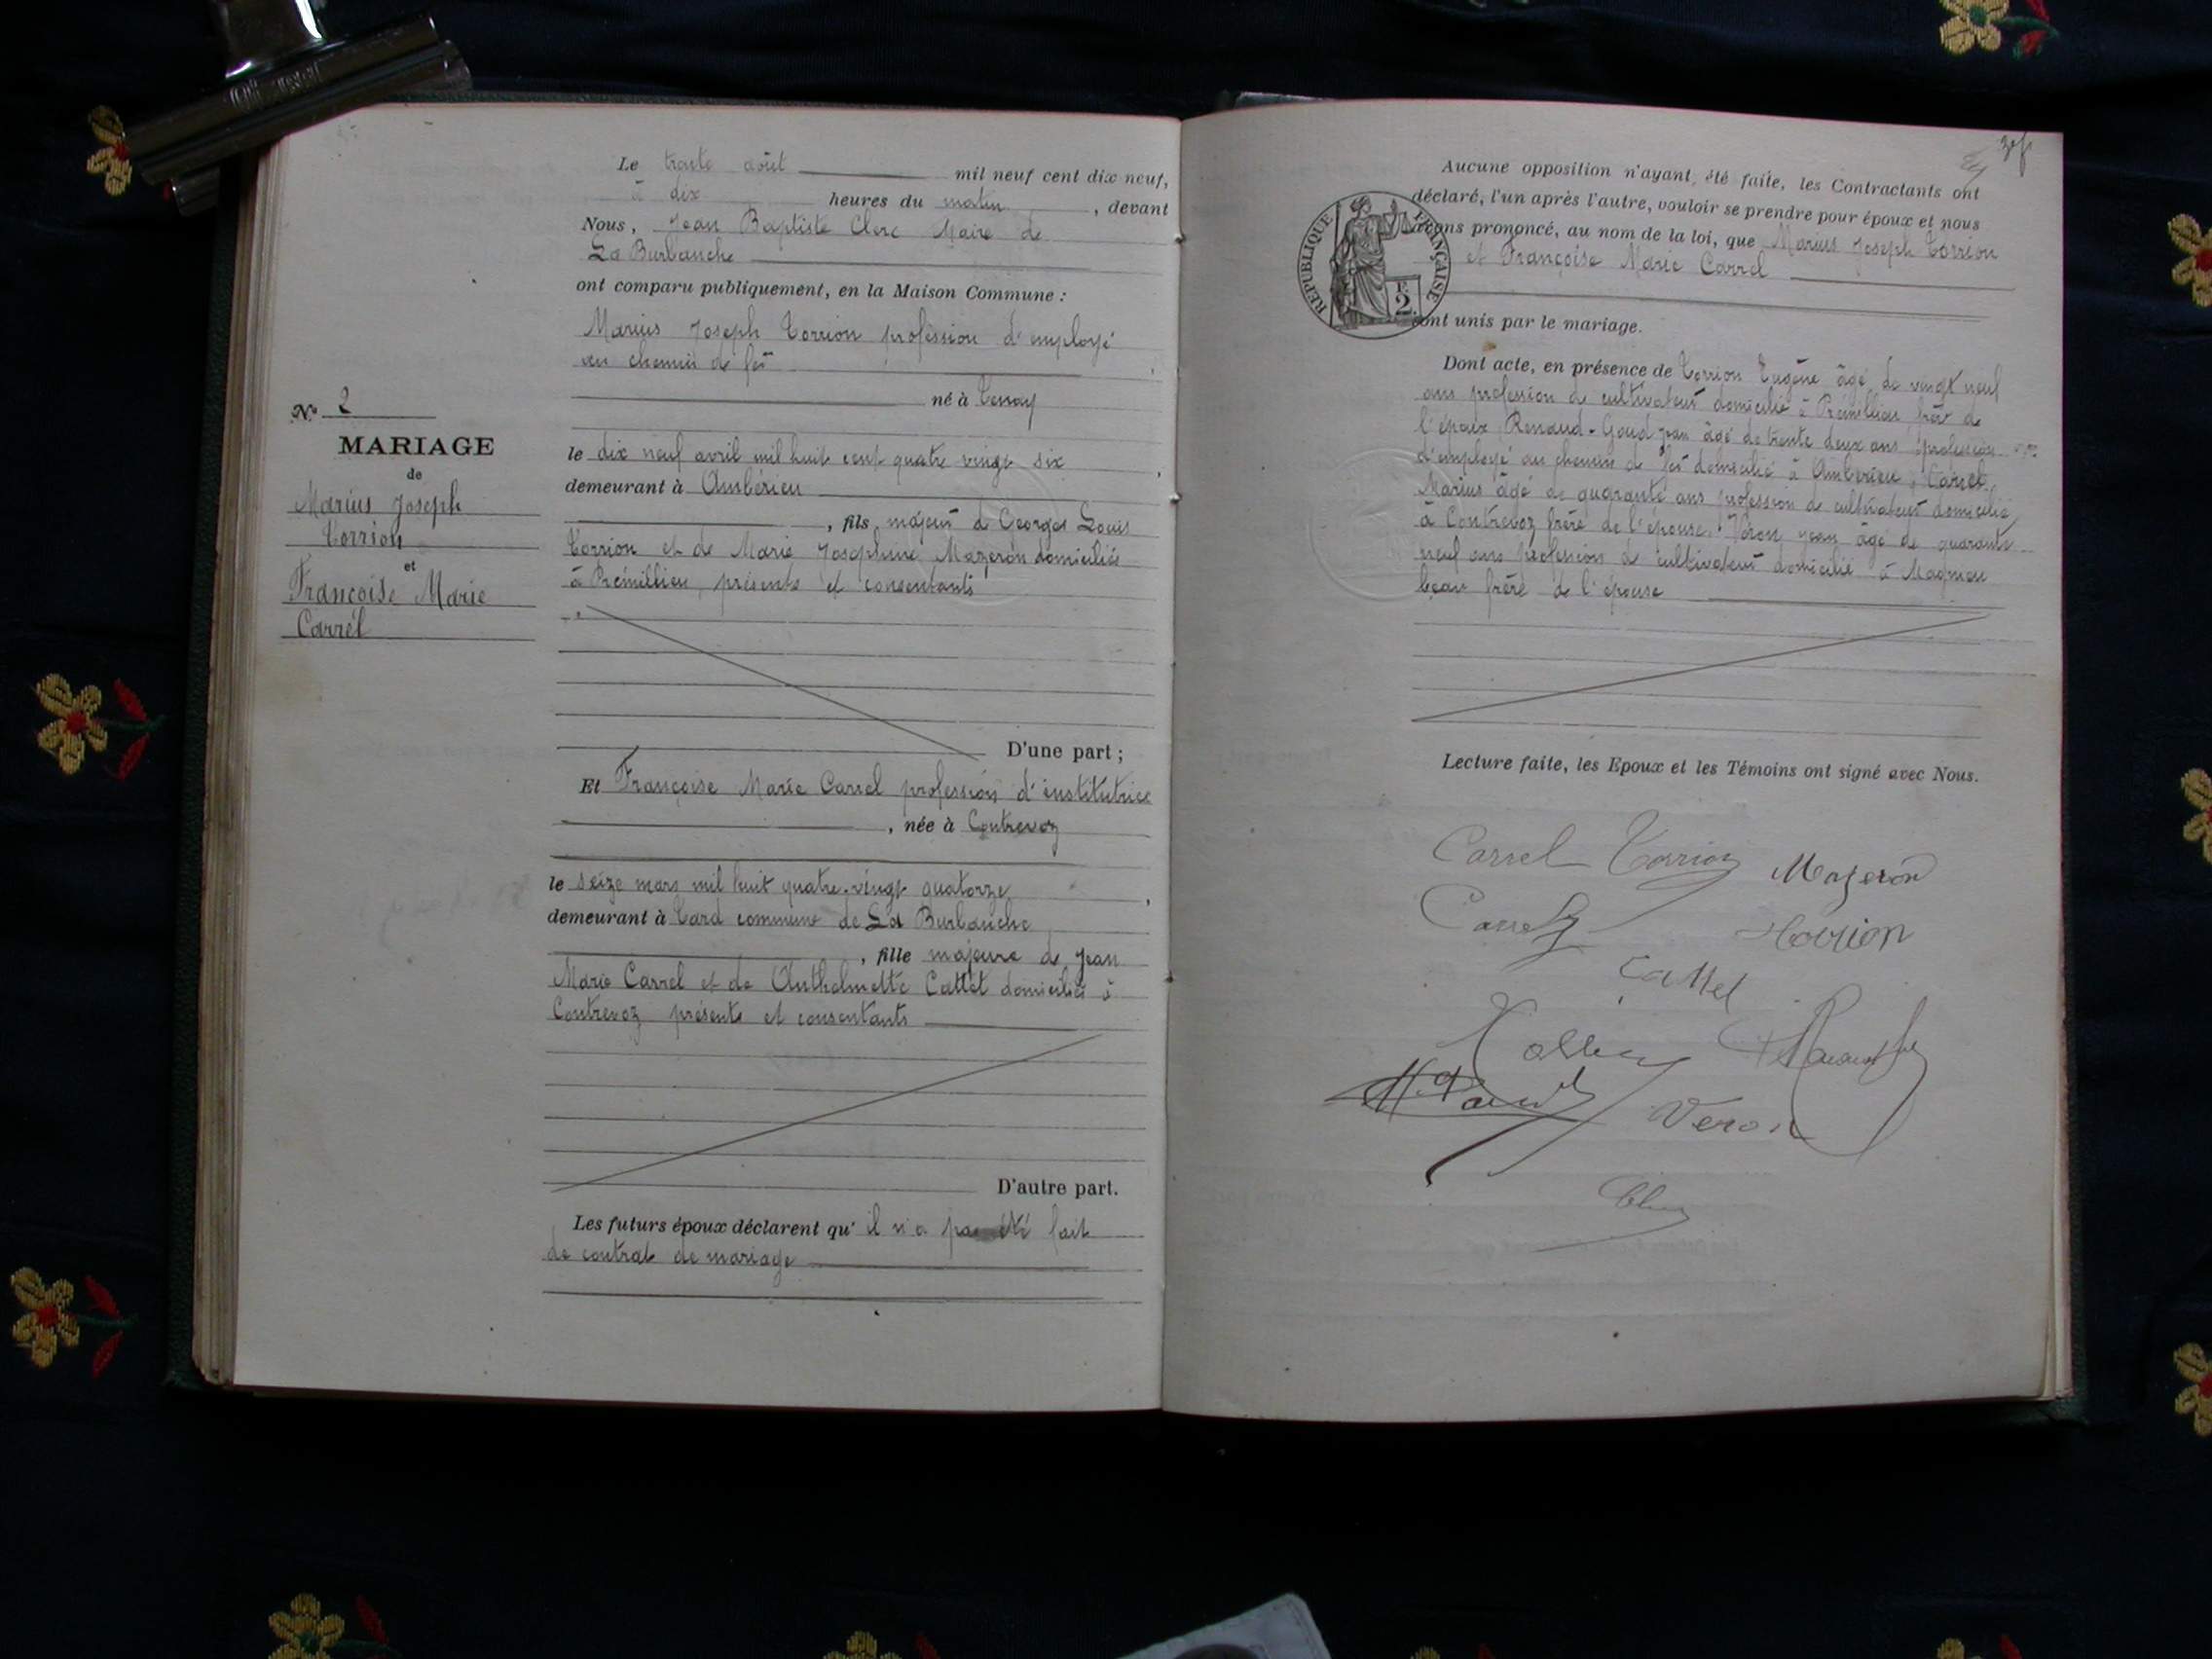 N° 2
MARIAGE
de
Marius Joseph
Torrion
et
Françoise Marie
Carrel
Le trente août mil neuf cent dix neuf,
à dix heures du matin, devant
Nous, Jean Baptiste Clerc Maire de
La Burbanche
ont comparu publiquement, en la Maison Commune :
Marius Joseph Torrion profession d'employé
au chemin de fer
né à Tenay
le dix neuf avril mil huit cent quatre vingt six,
demeurant à Ambérieu
, fils majeur de Georges Louis
Torrion et de Marie Josephine Mazeron domiciliés
à Prémillieu, présents et consentants
D'une part ;
Et Françoise Marie Carrel profession d'institutrice
, née à Contrevoz
le seize mars mil huit quatre-vingt quatorze,
demeurant à Tard commune de La Burbanche
, fille majeure de Jean
Marie Carrel et de Anthelmette Cattet domiciliés à
Contrevoz présents et consentants
D'autre part.
Les futurs époux déclarent qu' il n'a pas été fait
de contrat de mariage
Aucune opposition n'ayant été faite, les Contractants ont
déclaré, l'un après l'autre, vouloir se prendre pour époux et nous
avons prononcé, au nom de la loi, que Marius Joseph Torrion
et Françoise Marie Carrel
sont unis par le mariage.
RÉPUBLIQUE FRANÇAISE
F. 2
Dont acte, en présence de Torrion Eugène âgé de vingt neuf
ans profession de cultivateur domicilié à Prémillieu frère de
l'époux, Renaud-Goud jean âgé de trente deux ans profession
d'employé au chemin de fer domicilié à Ambérieu, Carrel
Marius âgé de quarante ans profession de cultivateur domicilié
à Contrevoz frère de l'épouse, Véron jean âgé de quarante
neuf ans profession de cultivateur domicilié à Magnieu
beau frère de l'épouse
Lecture faite, les Epoux et les Témoins ont signé avec Nous.
Carrel Torrion Mazeron
Carrel Torrion
Cattet
Veron
Clerc